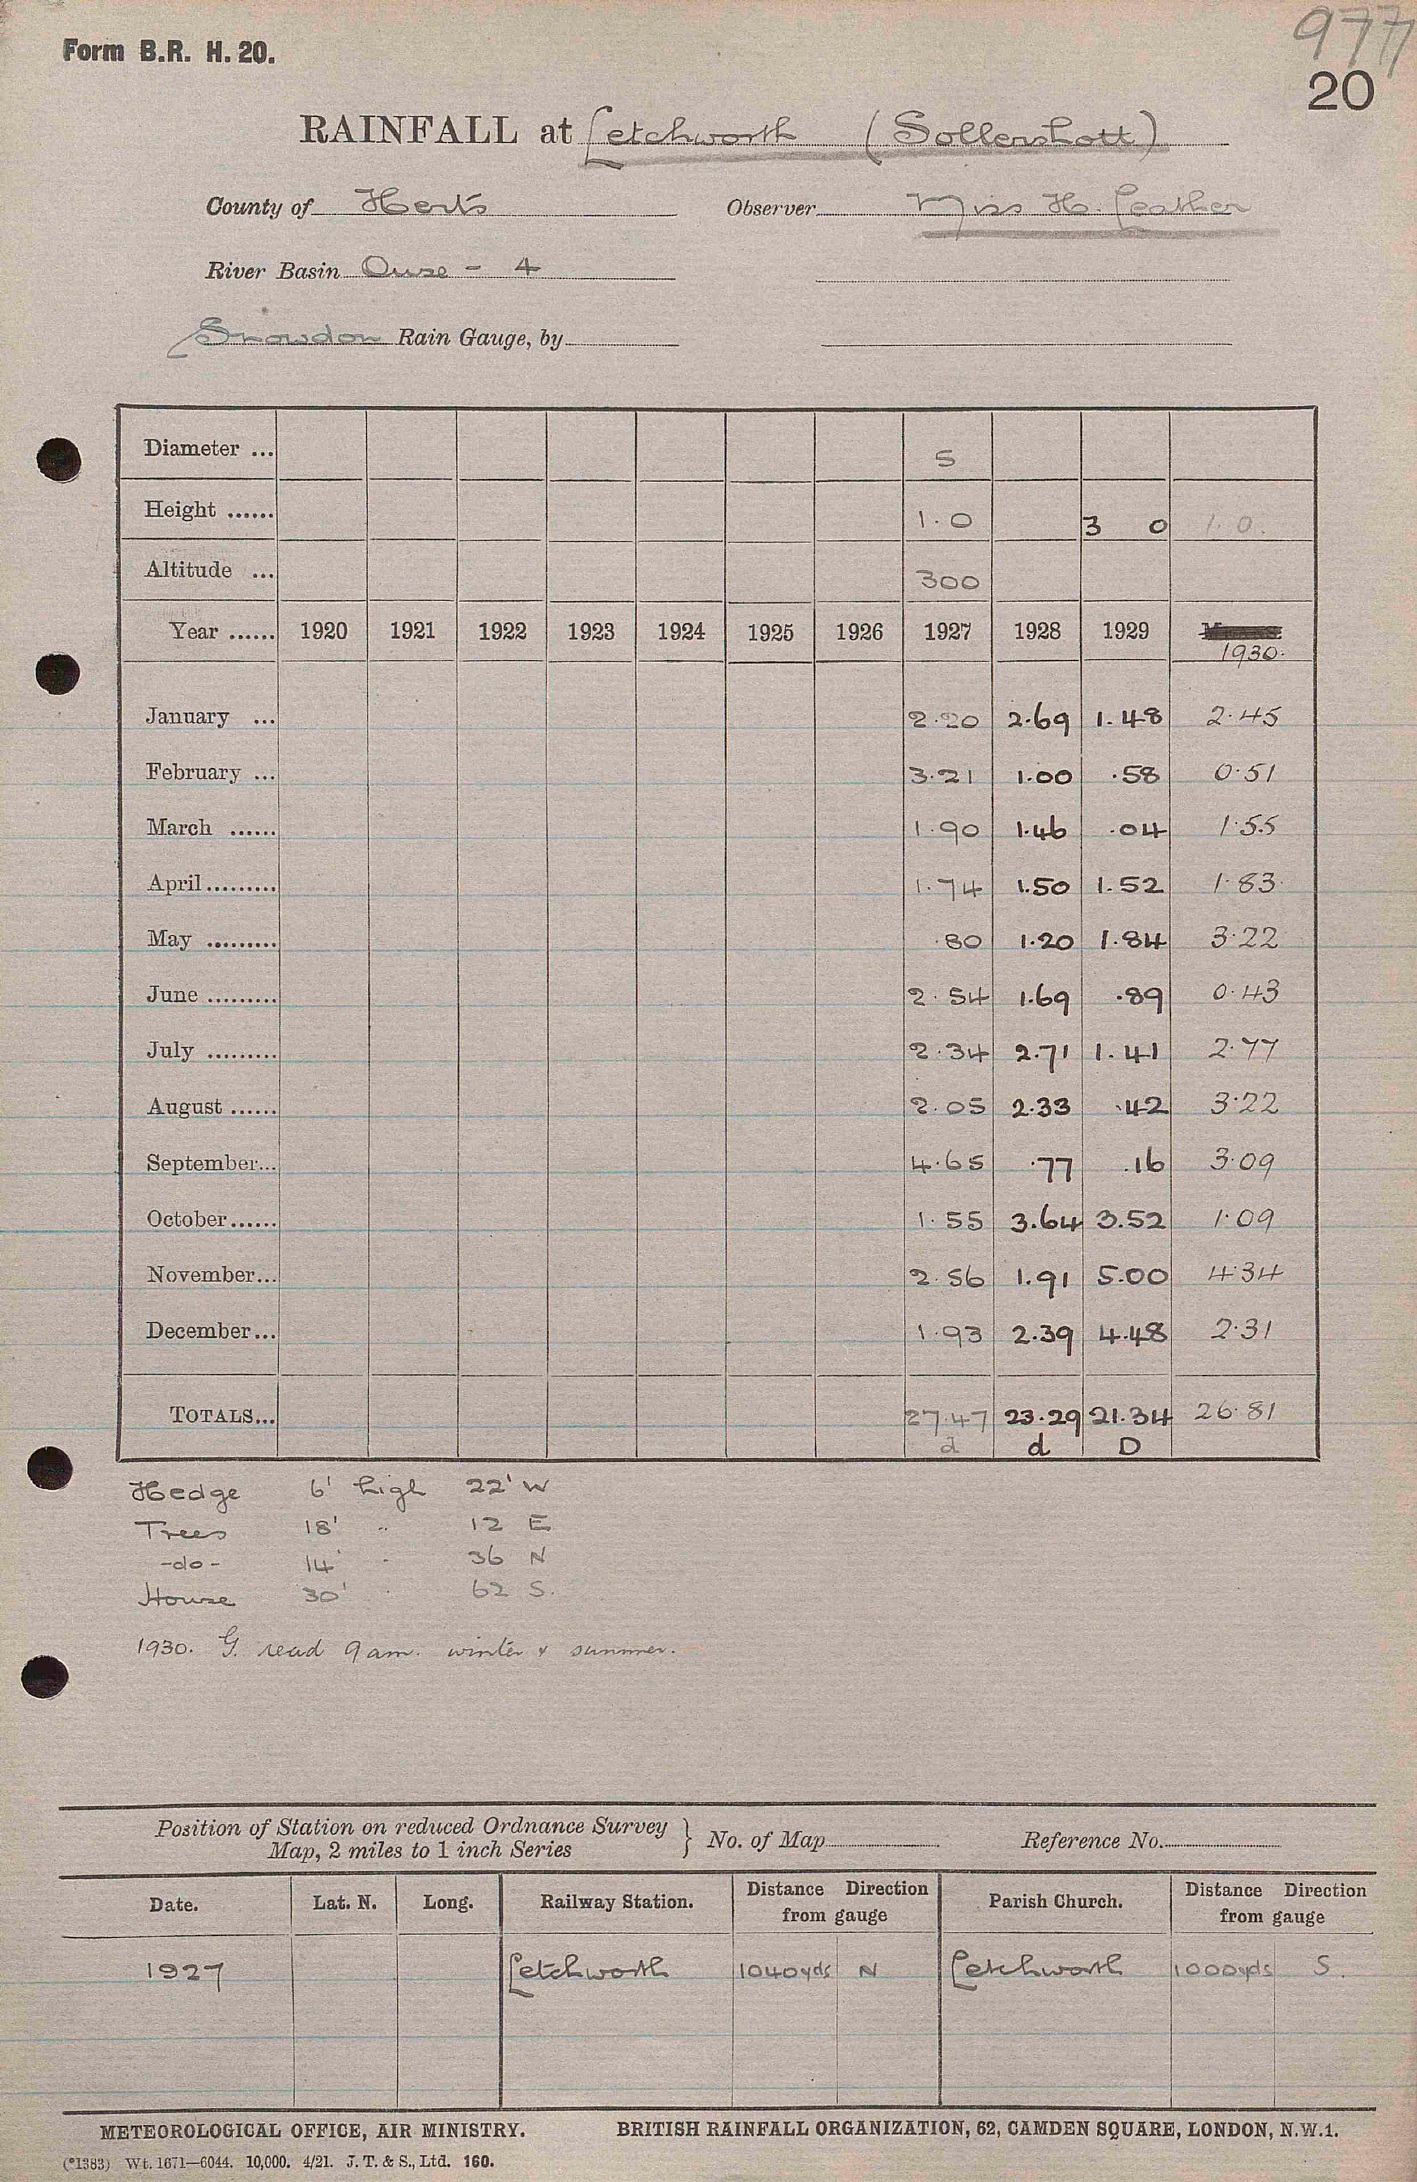 Form B.R. H. 20.
977
20
RAINFALL at Letchworth (Sollershott)
County of Herts Observer Miss H. Leather
River Basin Ouse - 4
Snowdon Rain Gauge, by
Diameter ... 5
Height ...... 1.0 3 0 1.0.
Altitude ... 300
Year ...... 1920 1921 1922 1923 1924 1925 1926 1927 1928 1929
1930.
January ... 2.20 2.69 1.48 2.45
February ... 3.21 1.00 .58 0.51
March ...... 1.90 1.46 .04 1.55
April ......... 1.74 1.50 1.52 1.83
May ......... .80 1.20 1.84 3.22
June ......... 2.54 1.69 .89 0.43
July ......... 2.34 2.71 1.41 2.77
August ...... 2.05 2.33 .42 3.22
September... 4.65 .77 .16 3.09
October...... 1.55 3.64 3.52 1.09
November... 2.56 1.91 5.00 4.34
December... 1.93 2.39 4.48 2.31
TOTALS... 27.47 23.29 21.34 26.81
d d D
Hedge 6' high 22' W
Trees 18' " 12 E
-do- 14' " 36 N
House 30' " 62 S.
1930. G. read 9 am. winter & summer.
Position of Station on reduced Ordnance Survey
Map, 2 miles to 1 inch Series } No. of Map Reference No.
Date. Lat. N. Long. Railway Station. Distance Direction from gauge Parish Church. Distance Direction from gauge
1927 Letchworth 1040yds N Letchworth 1000yds S.
METEOROLOGICAL OFFICE, AIR MINISTRY. BRITISH RAINFALL ORGANIZATION, 62, CAMDEN SQUARE, LONDON, N.W.1.
(*1383) Wt. 1671—6044. 10,000. 4/21. J. T. & S., Ltd. 160.